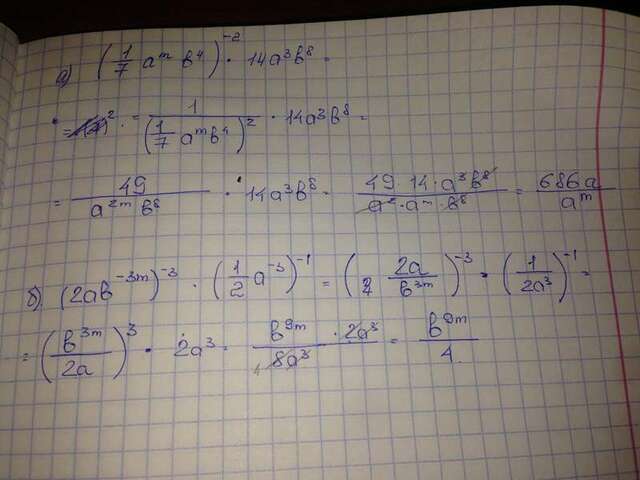 а) (1/7 a^m b^4)^-2 · 14a^3b^8 =
= 1/(1/7 a^m b^4)^2 · 14a^3b^8 =
= 49/(a^2m b^8) · 14a^3b^8 = (49 · 14 · a^3b^8)/(a^2 · a^m · b^8) = 686a/a^m
б) (2ab^-3m)^-3 · (1/2 a^-3)^-1 = (2a/b^3m)^-3 · (1/2a^3)^-1 =
= (b^3m/2a)^3 · 2a^3 = (b^9m · 2a^3)/(8a^3) = b^9m/4